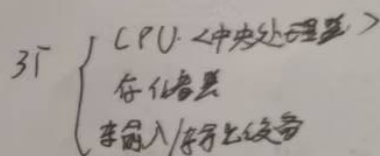 CPU.<中央处理器>
存储器
输入/输出设备